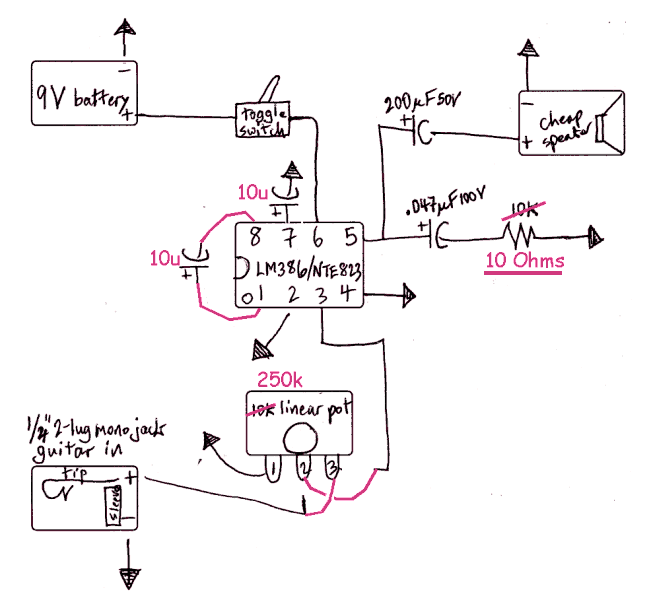 9V battery
−
+
toggle
switch
200µF50V
+
−
+
cheap
speaker
10u
+
.047µF100V
+
10k
10 Ohms
10u
+
8 7 6 5
LM386/NTE823
1 2 3 4
250k
10k linear pot
1 2 3
1/4" 2-lug mono jack
guitar in
tip +
sleeve
−